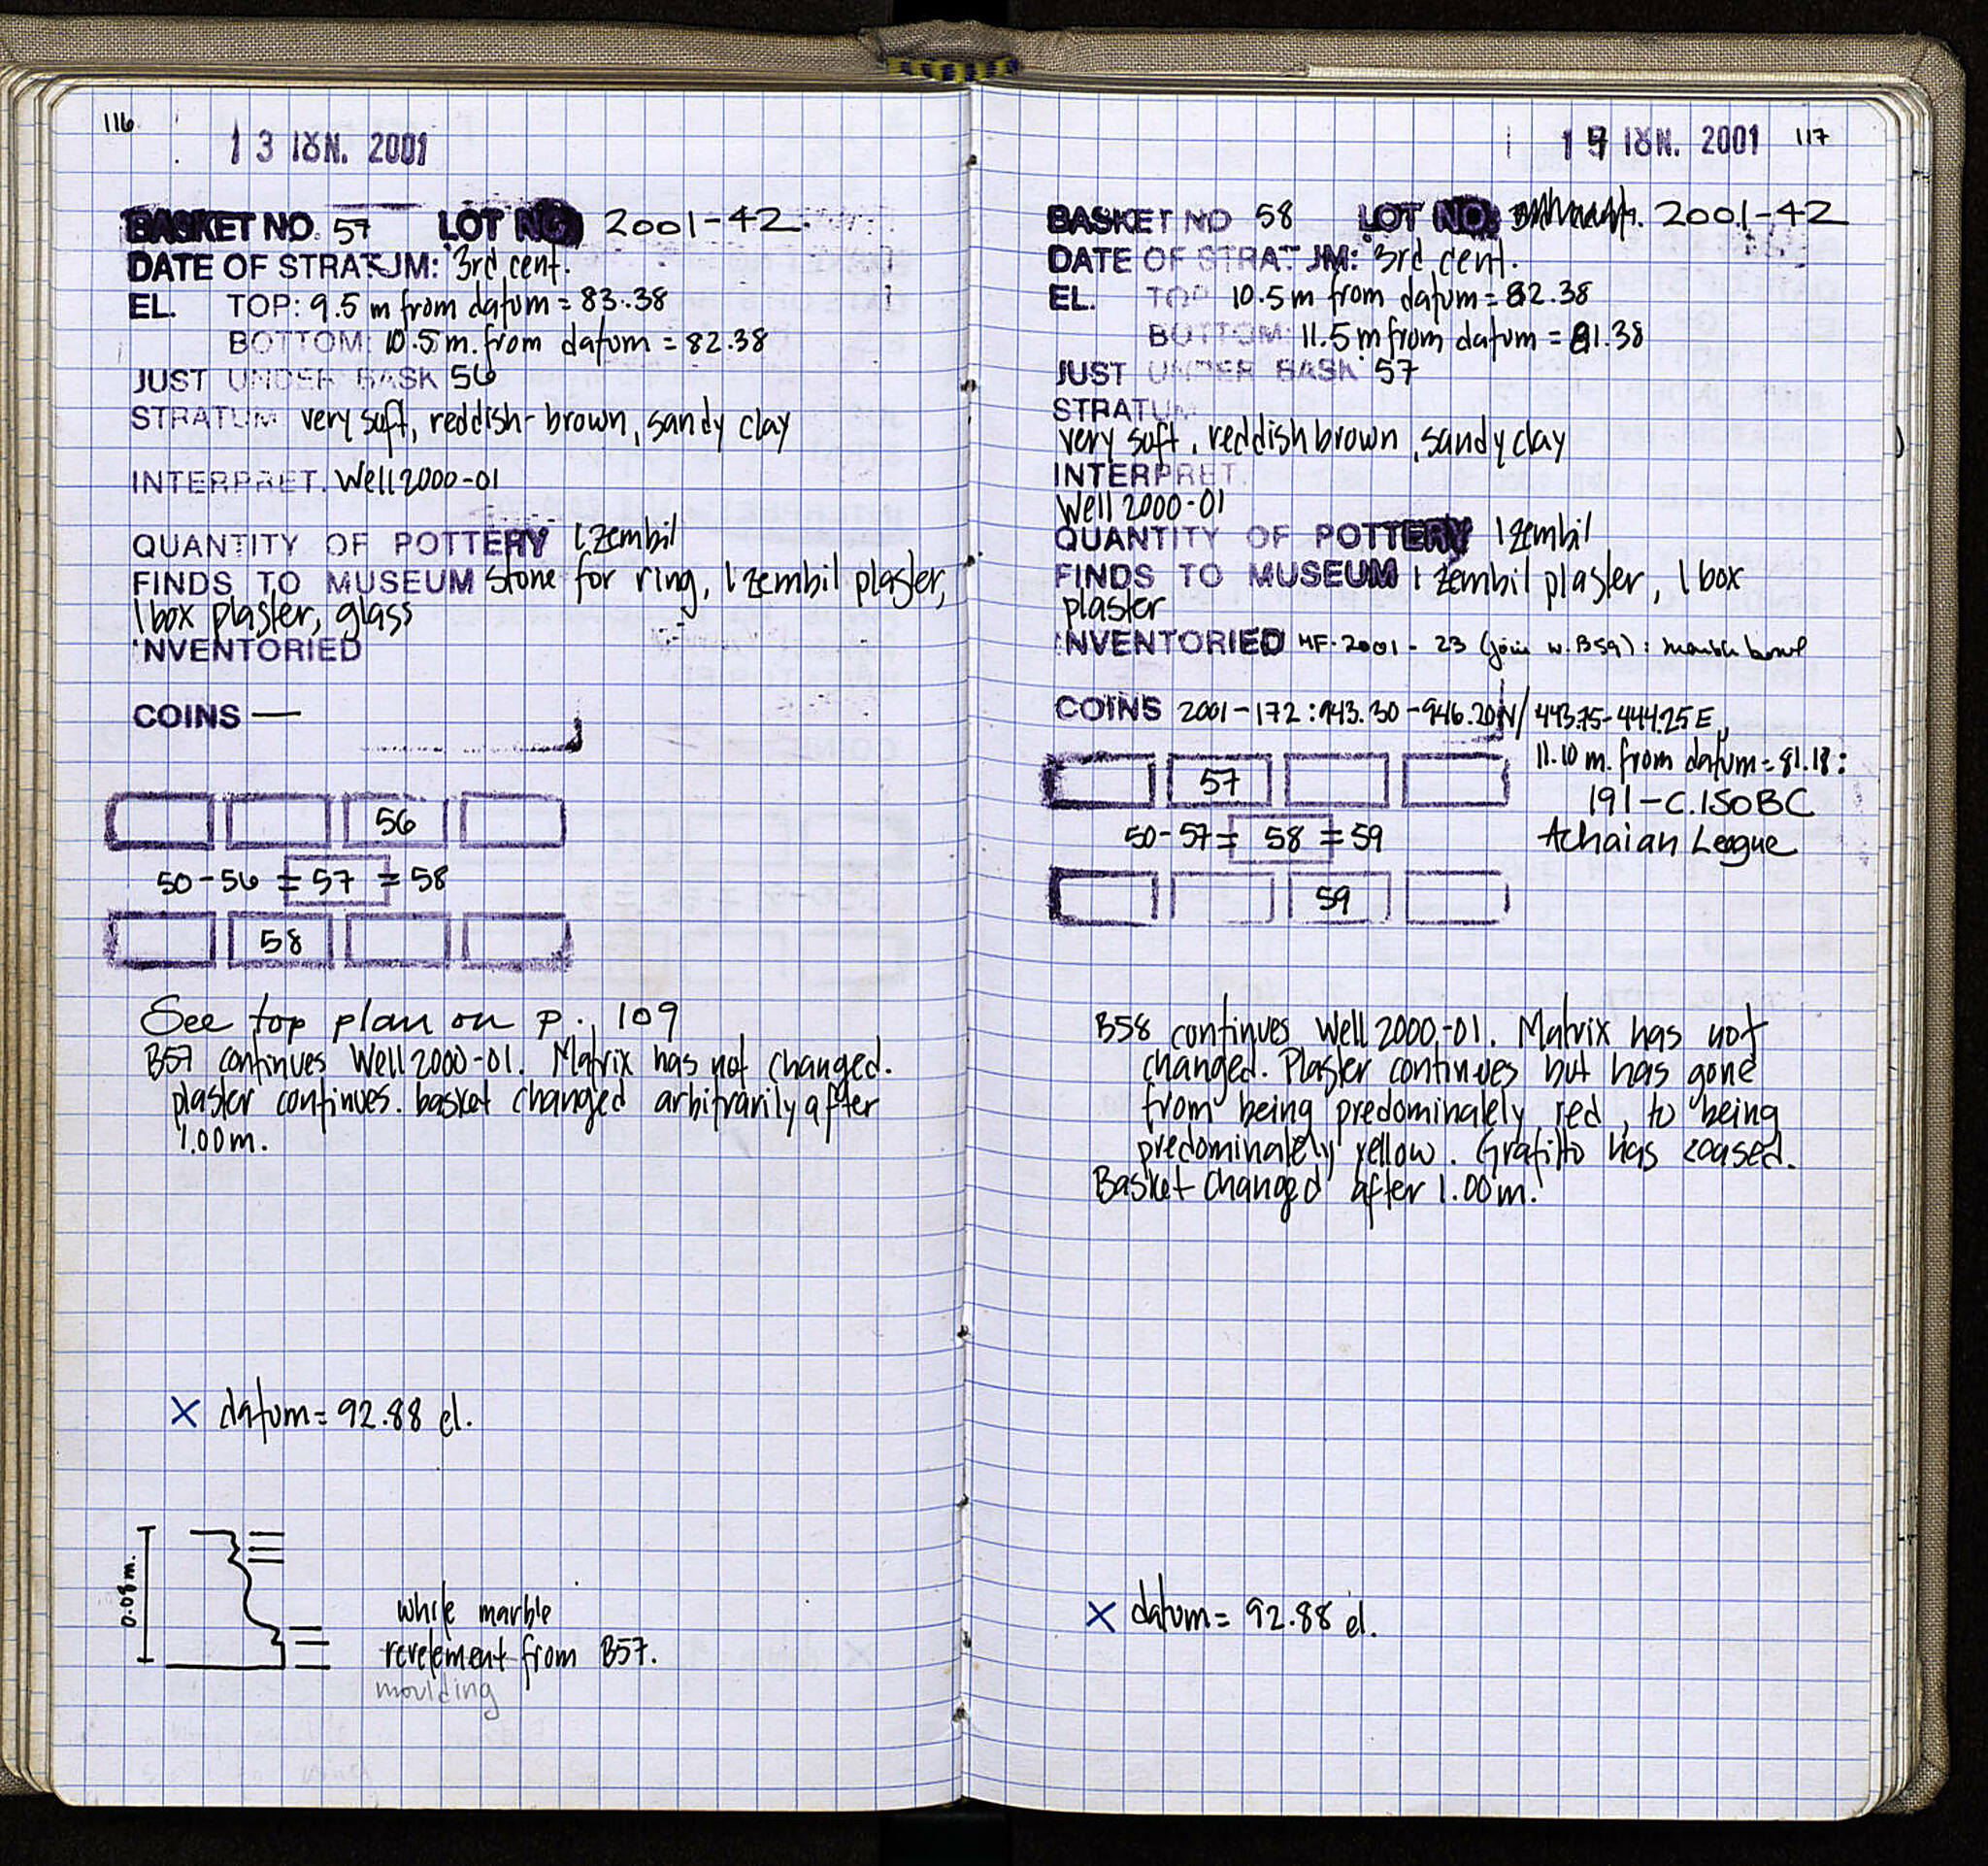 116
13 ΙΟΥΝ. 2001
BASKET NO. 57 LOT NO. 2001-42.
DATE OF STRATUM: 3rd cent.
EL. TOP: 9.5 m from datum = 83.38
BOTTOM: 10.5 m. from datum = 82.38
JUST UNDER BASK 56
STRATUM: very soft, reddish-brown, sandy clay
INTERPRET. Well 2000-01
QUANTITY OF POTTERY 1 zembil
FINDS TO MUSEUM stone for ring, 1 zembil plaster,
1 box plaster, glass
INVENTORIED
COINS —
56
50-56 = 57 = 58
58
See top plan on p. 109
B57 continues Well 2000-01. Matrix has not changed.
plaster continues. basket changed arbitrarily after
1.00 m.
X datum = 92.88 el.
0.08 m.
white marble
revetement from B57.
moulding
117
ΙΟΥΝ. 2001
BASKET NO 58 LOT NO. 2001-42
DATE OF STRATUM: 3rd cent.
EL. TOP 10.5 m from datum = 82.38
BOTTOM: 11.5 m from datum = 81.38
JUST UNDER BASK 57
STRATUM
very soft, reddish brown, sandy clay
INTERPRET.
Well 2000-01
QUANTITY OF POTTERY 1 zembil
FINDS TO MUSEUM 1 zembil plaster, 1 box
plaster
INVENTORIED MF-2001-23 (join w. B59): marble bowl
COINS 2001-172: 943.30-946.20N/ 443.75-444.25E,
11.10 m. from datum = 81.18:
191-C.150BC
Achaian League
57
50-57 = 58 = 59
59
B58 continues Well 2000-01. Matrix has not
changed. Plaster continues but has gone
from being predominately red, to being
predominately yellow. Grafitto has ceased.
Basket changed after 1.00 m.
X datum = 92.88 el.